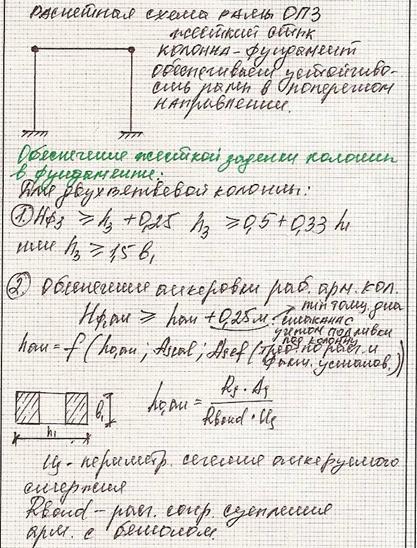 Расчётная схема рамы ОПЗ
жёсткий стык
колонна-фундамент
обеспечивает устойчиво-
сть рамы в поперечном
направлении.
Обеспечение жёсткой заделки колонны
в фундаменте:
Для двухветвевой колонны:
① Hф3 ≥ h3 + 0,25 h3 ≥ 0,5 + 0,33 h1
или h3 ≥ 1,5 b1
② Обеспечение анкеровки раб. арм. кол.
Hф,ан ≥ hан + 0,25 м. → толщ. дна
стакана с
учётом подливки
под колонну
hан = f (h0,ан ; As,cal ; As,ef (треб. по расч. и
факт. установл.))
h0,ан = Rs · As / Rbond · Us
b1
h1
Us - периметр. сечения анкеруемого
стержня
Rbond – расч. сопр. сцепления
арм. с бетоном.